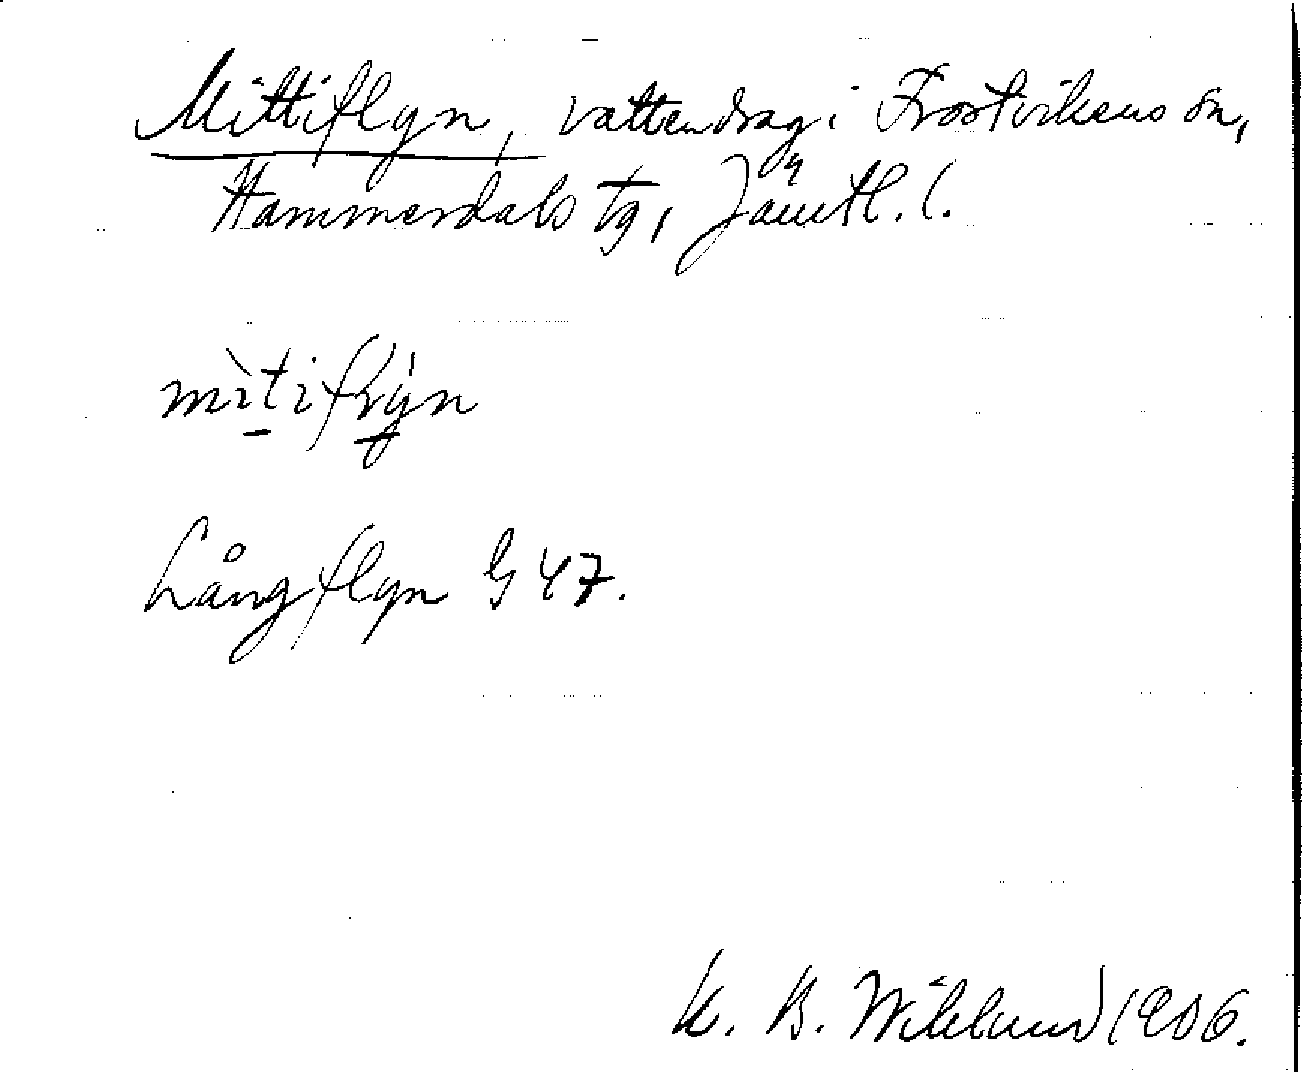 Mittiflyn, vattendrag i Frostvikens sn,
Hammerdals tg, Jämtl. l.
mìtifrýn
Långflyn G 47.
K. B. Wiklund 1906.